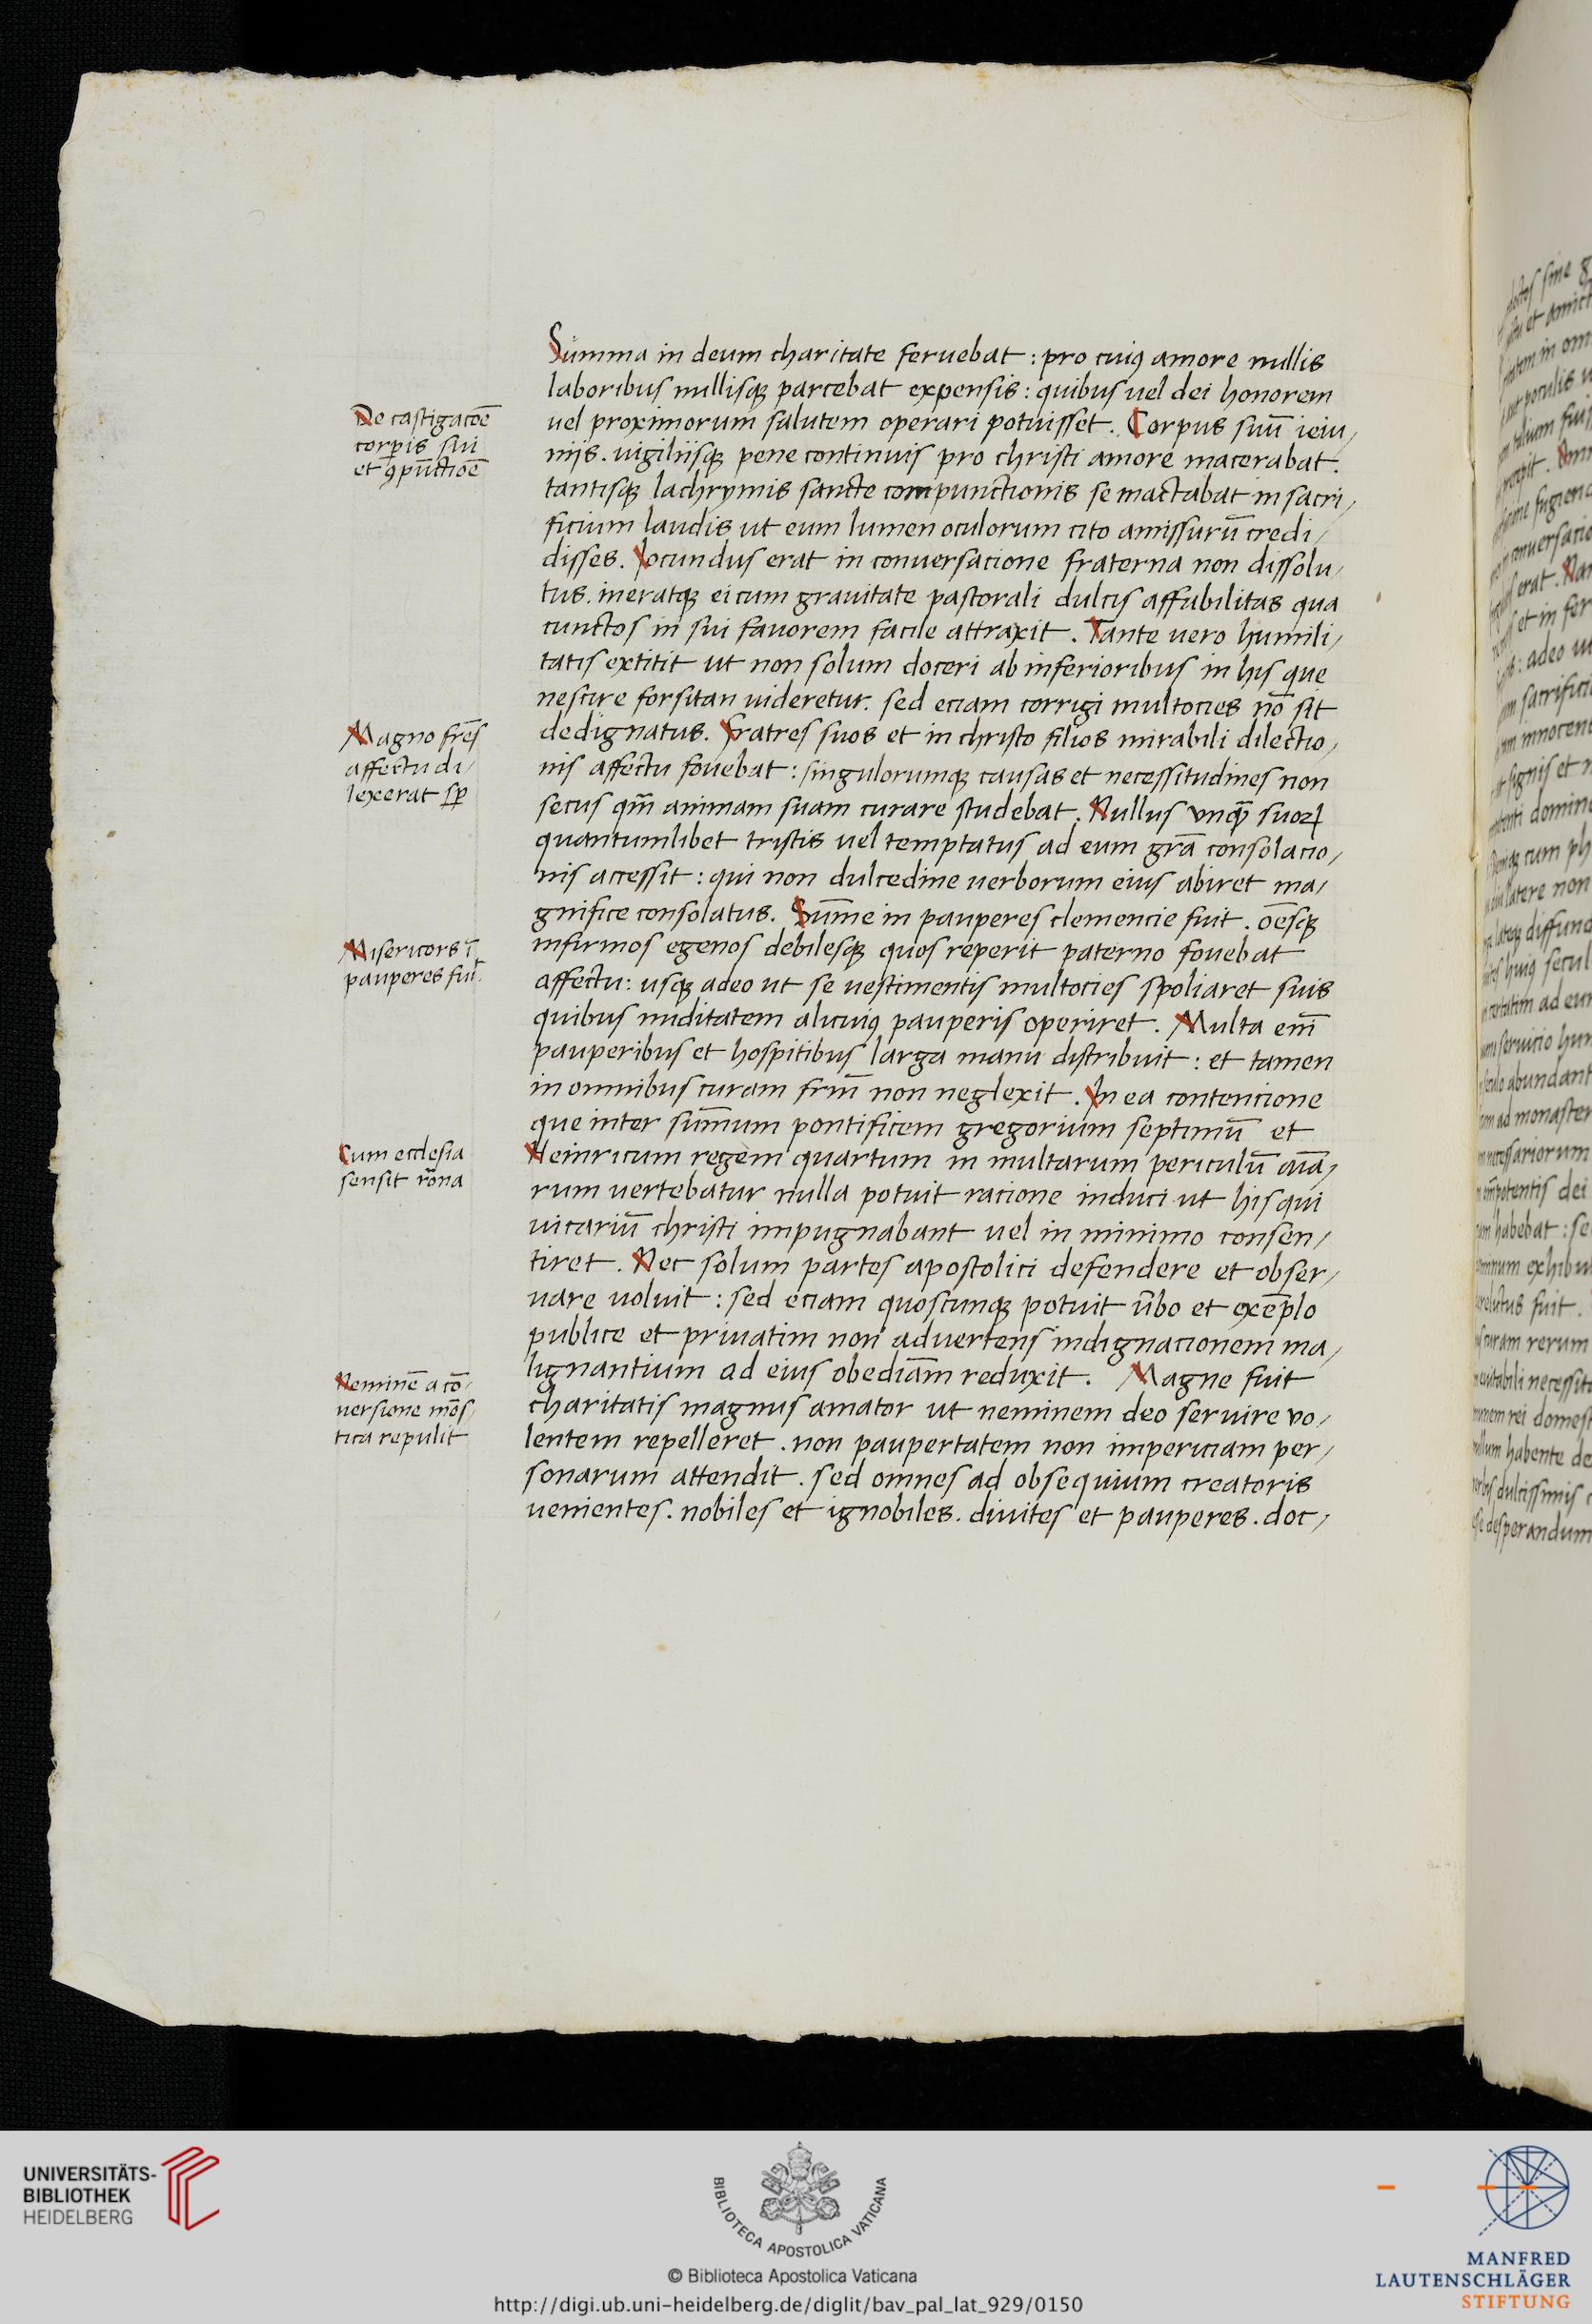 Summa in deum charitate feruebat : pro cuiꝰ amore nullis
laboribus nullisqꝫ parcebat expensis : quibus uel dei honorem
De castigacōe
corꝑis sui
et ꝯpūctiōe
uel proximorum salutem operari potuisset. Corpus suū ieiu/
nijs. uigiliisqꝫ pene continuis pro christi amore macerabat.
tantisqꝫ lachrymis sancte compunctionis se mactabat in sacri/
ficium laudis ut eum lumen oculorum cito amissurū credi/
disses. Iocundus erat in conuersacione fraterna non dissolu/
tus. ineratqꝫ ei cum grauitate pastorali dulcis affabilitas qua
cunctos in sui fauorem facile attraxit. Tante uero humili/
tatis extitit ut non solum doceri ab inferioribus in his que
nescire forsitan uideretur. sed eciam corrigi multocies nō sit
Magno frēs
affectu di/
lexerat sꝑ
dedignatus. Fratres suos et in christo filios mirabili dilectio/
nis affectu fouebat : singulorumqꝫ causas et necessitudines non
secus qm̄ animam suam curare studebat. Nullus vnqꝫ̄ suoꝝ
quantumlibet tristis uel temptatus ad eum grā consolacio/
nis accessit : qui non dulcedine uerborum eius abiret ma/
gnifice consolatus. Sum̄e in pauperes clemencie fuit. oēsqꝫ
Misericors ī
pauperes fuit.
infirmos egenos debilesqꝫ quos reperit paterno fouebat
affectu: usqꝫ adeo ut se uestimentis multocies spoliaret suis
quibus nuditatem alicuiꝰ pauperis operiret. Multa em̄
pauperibus et hospitibus larga manu distribuit : et tamen
in omnibus curam frm̄ non neglexit. In ea contencione
que inter sum̄um pontificem gregorium septimū et
Cum ecclesia
sensit rōna
Heinricum regem quartum in multarum periculū aīa/
rum uertebatur nulla potuit racione induci ut his qui
uicariū christi impugnabant uel in minimo consen/
tiret. Nec solum partes apostolici defendere et obser/
uare uoluit : sed eciam quoscunqꝫ potuit ūbo et exēplo
publice et priuatim non advertens indignacionem ma/
lignantium ad eius obediām reduxit. Magne fuit
Neminē a cō/
uersione mōs/
tica repulit
charitatis magnus amator ut neminem deo seruire vo/
lentem repelleret. non paupertatem non impericiam per/
sonarum attendit. sed omnes ad obsequium creatoris
uenientes. nobiles et ignobiles. diuites et pauperes. doc/
UNIVERSITÄTS-
BIBLIOTHEK
HEIDELBERG
BIBLIOTECA APOSTOLICA VATICANA
© Biblioteca Apostolica Vaticana
http://digi.ub.uni-heidelberg.de/diglit/bav_pal_lat_929/0150
MANFRED
LAUTENSCHLÄGER
STIFTUNG